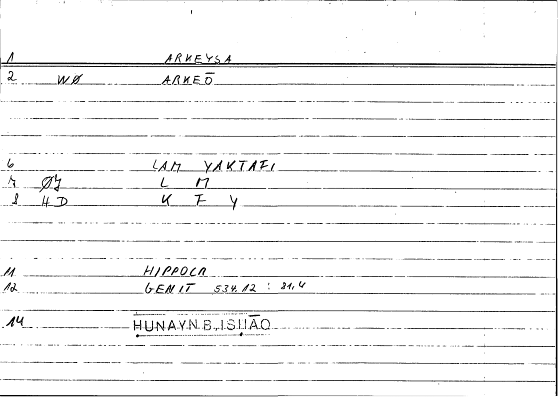 1 ARKEYSA
2 WØ ARKEŌ
6 LAM YAKTAFI
7 ØJ L M
8 HD K F Y
11 HIPPOCR
12 GENIT 534.12 : 81,4
14 ḤUNAYN.B.ISḤĀQ